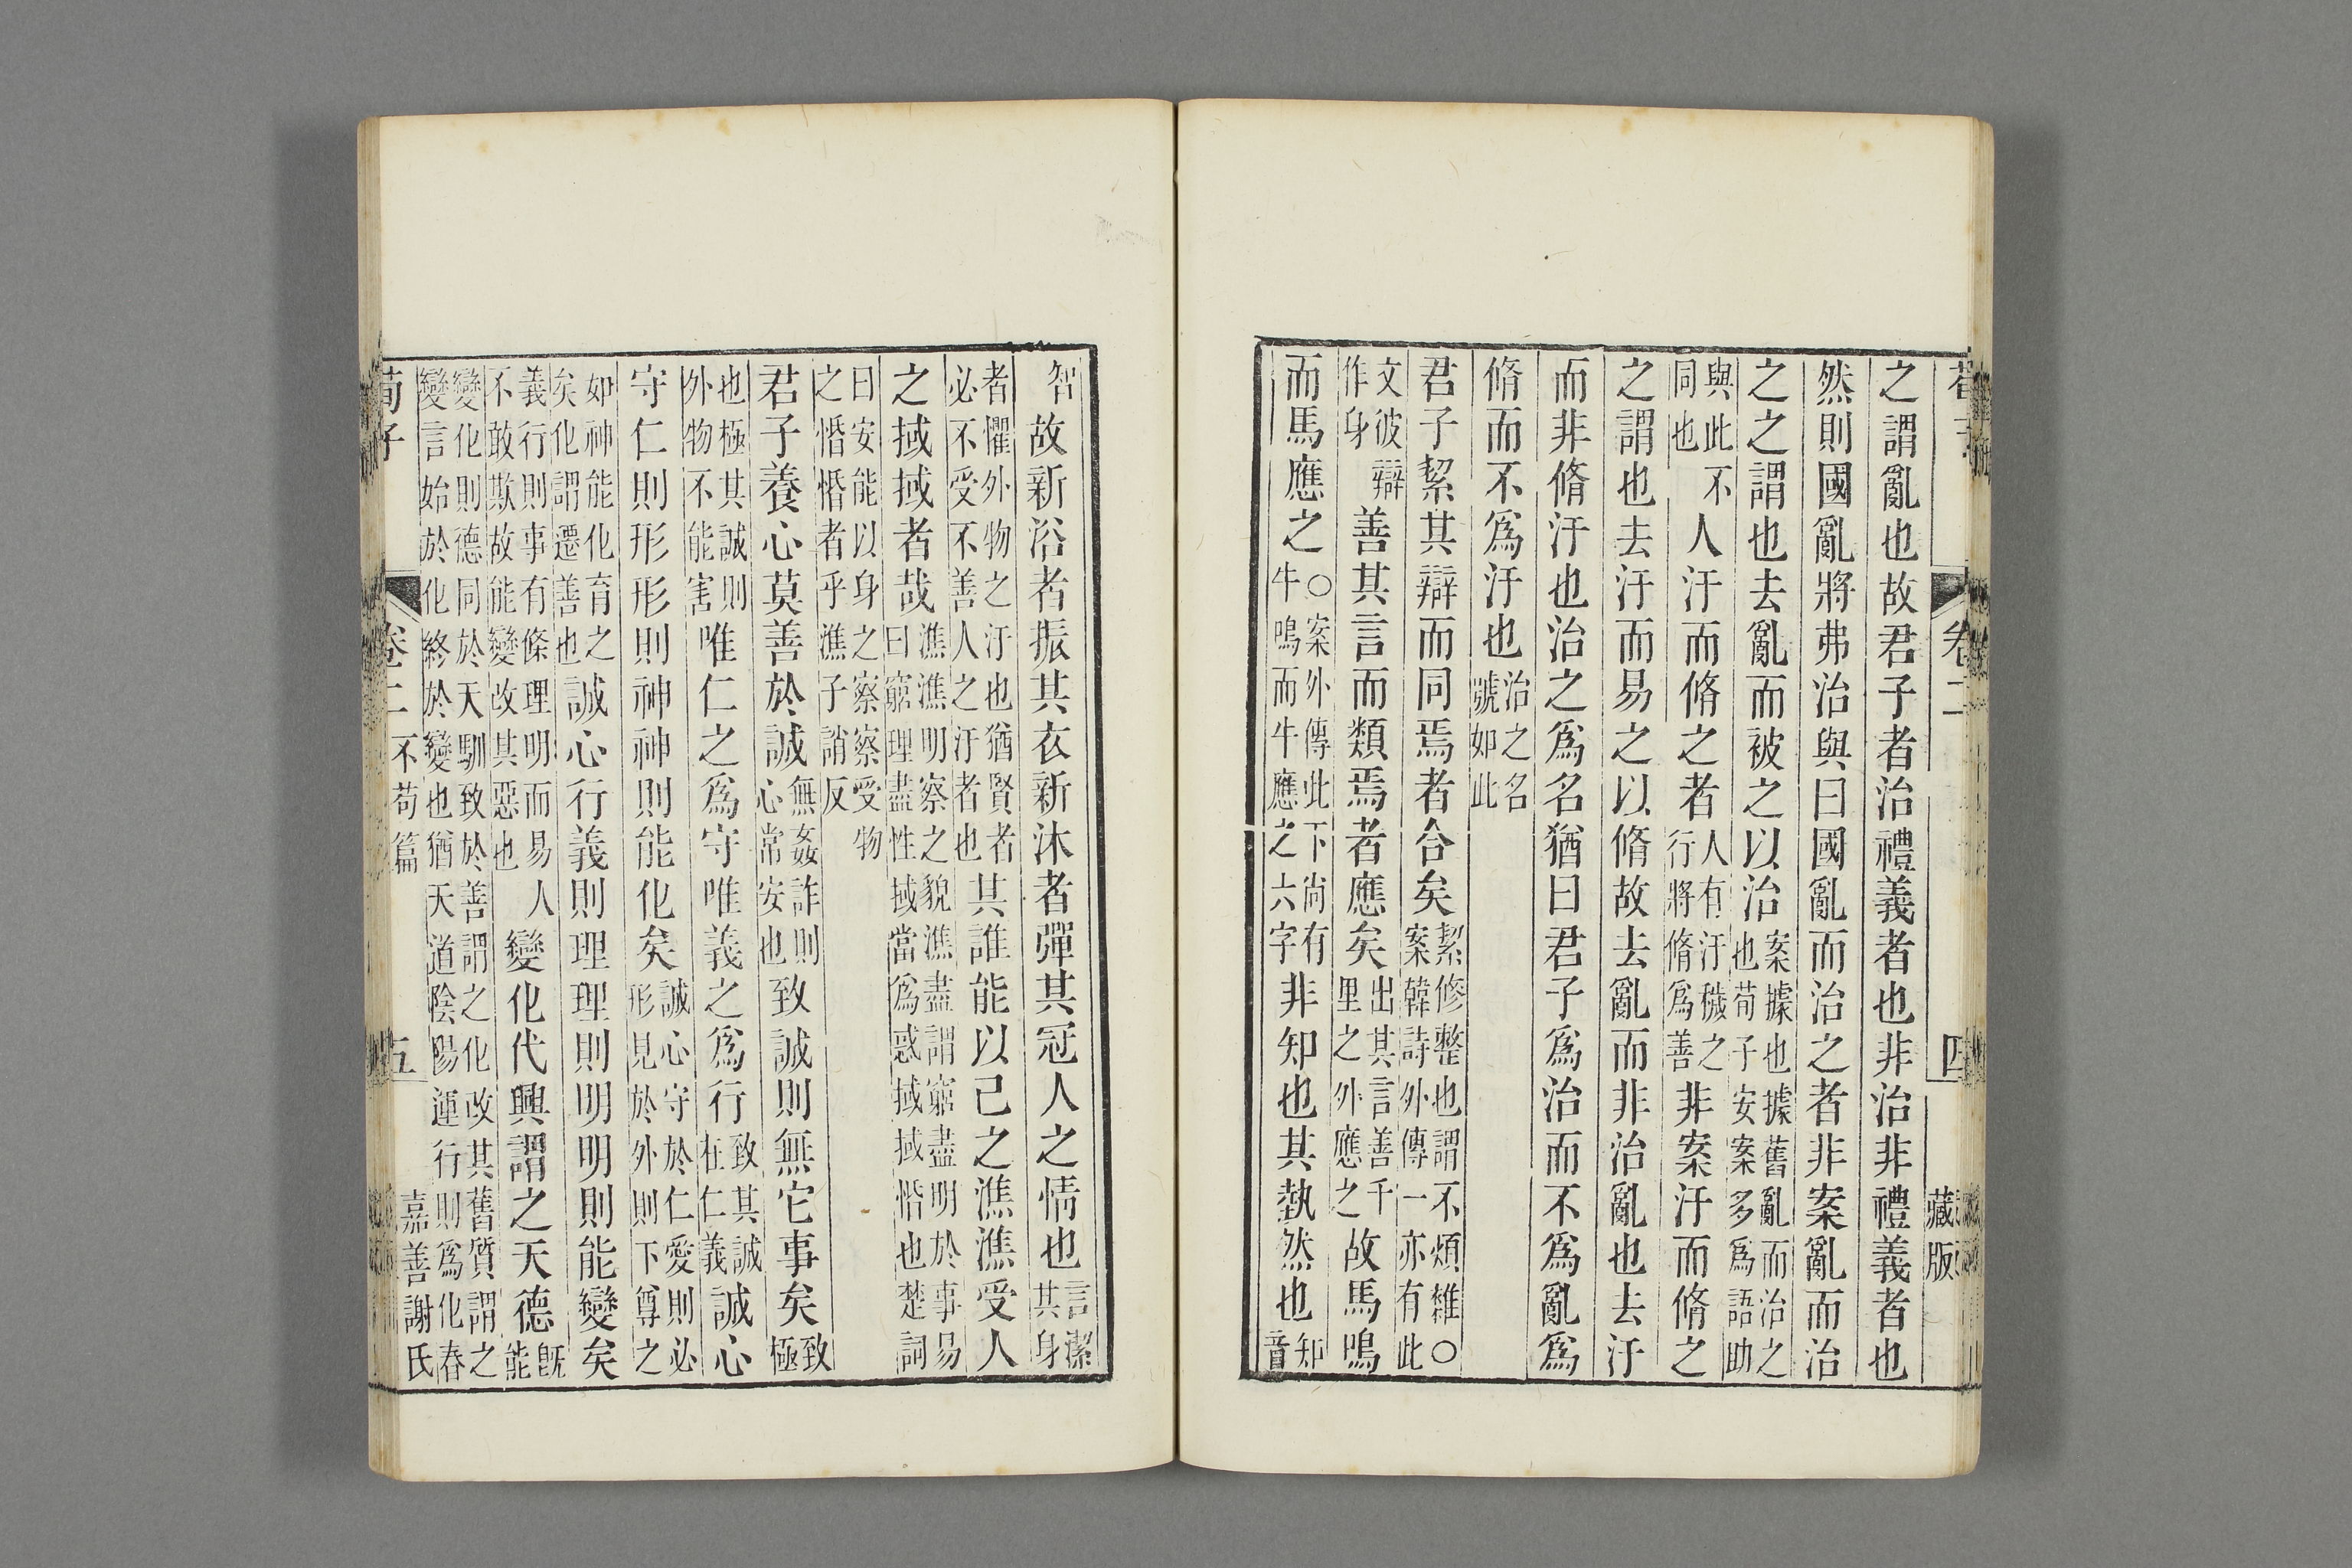 荀子 卷二 四 藏版
之謂亂也故君子者治禮義者也非治非禮義者也
然則國亂將弗治與曰國亂而治之者非案亂而治
之之謂也去亂而被之以治案據也據舊亂而治之也荀子安案多爲語助
與此不同也人汙而脩之者人有汙穢之行將脩爲善非案汙而脩之
之謂也去汙而易之以脩故去亂而非治亂也去汙
而非脩汙也治之爲名猶曰君子爲治而不爲亂爲
脩而不爲汙也治之名號如此
君子絜其辯而同焉者合矣絜修整也謂不煩雜○案韓詩外傳一亦有此
文彼辯作身善其言而類焉者應矣出其言善千里之外應之故馬鳴
而馬應之○案外傳此下尚有牛鳴而牛應之六字非知也其埶然也知音
智故新浴者振其衣新沐者彈其冠人之情也言潔其身
者懼外物之汙也猶賢者必不受不善人之汙者也其誰能以己之潐潐受人
之掝掝者哉潐潐明察之貌潐盡謂窮盡明於事易曰窮理盡性掝當爲惑掝掝惛也楚詞
曰安能以身之察察受物之惛惛者乎潐子誚反
君子養心莫善於誠無姦詐則心常安也致誠則無它事矣致極
也極其誠則外物不能害唯仁之爲守唯義之爲行致其誠在仁義誠心
守仁則形形則神神則能化矣誠心守於仁愛則必形見於外則下尊之
如神能化育之矣化謂遷善也誠心行義則理理則明明則能變矣
義行則事有條理明而易人不敢欺故能變改其惡也變化代興謂之天德既能
變化則德同於天馴致於善謂之化改其舊質謂之變言始於化終於變也猶天道陰陽運行則爲化春
荀子 卷二 不苟篇 五 嘉善謝氏